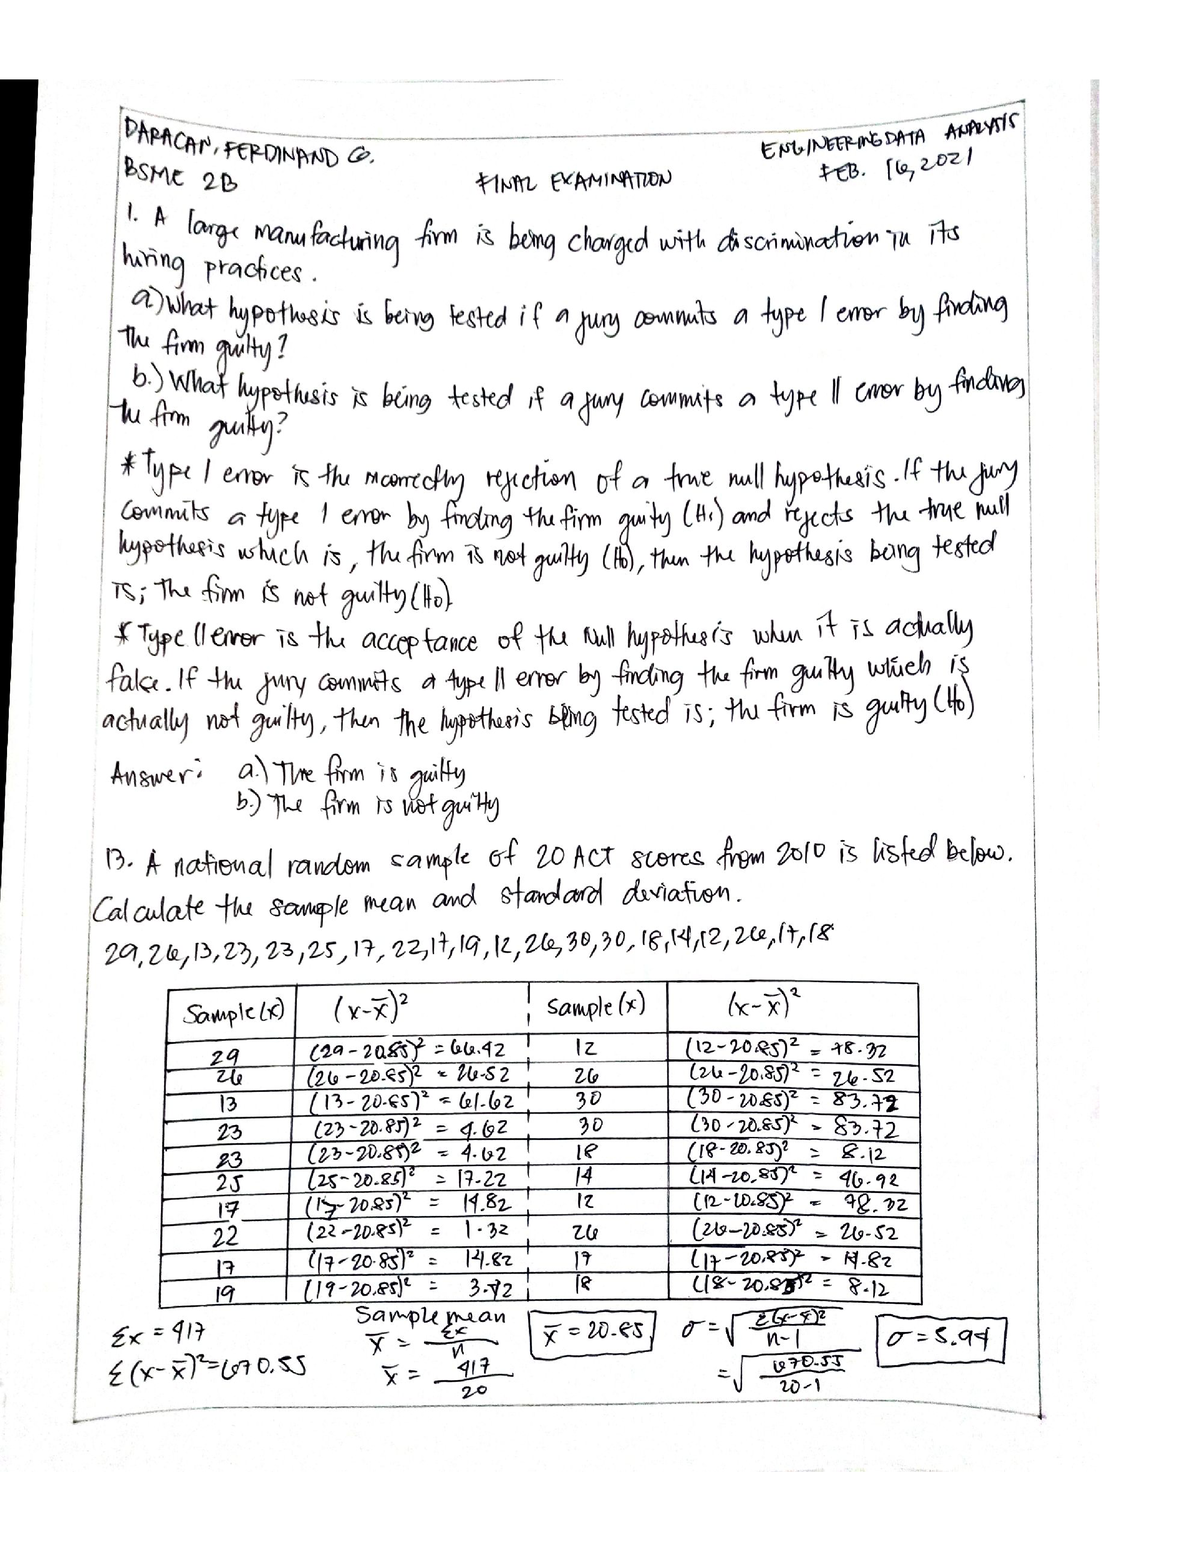 DARACAN, FERDINAND G.
ENGINEERING DATA ANALYSIS
BSME 2B
FEB. 16, 2021
FINAL EXAMINATION
1. A large manufacturing firm is being charged with discrimination in its
hiring practices.
a) What hypothesis is being tested if a jury commits a type I error by finding
the firm guilty?
b.) What hypothesis is being tested if a jury commits a type II error by finding
the firm guilty?
* Type I error is the incorrectly rejection of a true null hypothesis. If the jury
commits a type I error by finding the firm guity (H1) and rejects the true null
hypothesis which is, the firm is not guilty (H0), then the hypothesis being tested
is; The firm is not guilty (H0)
* Type II error is the acceptance of the Null hypothesis when it is actually
false. If the jury commits a type II error by finding the firm guilty which is
actually not guilty, then the hypothesis being tested is; the firm is guilty (H0)
Answer: a.) The firm is guilty
b.) The firm is not guilty
13. A national random sample of 20 ACT scores from 2010 is listed below.
Calculate the sample mean and standard deviation.
29, 26, 13, 23, 23, 25, 17, 22, 17, 19, 12, 26, 30, 30, 18, 14, 12, 26, 17, 18
Sample (x) (x-x̄)² Sample (x) (x-x̄)²
29 (29-20.85)² = 66.42 12 (12-20.85)² = 78.32
26 (26-20.85)² = 26.52 26 (26-20.85)² = 26.52
13 (13-20.85)² = 61.62 30 (30-20.85)² = 83.72
23 (23-20.85)² = 4.62 30 (30-20.85)² = 83.72
23 (23-20.85)² = 4.62 18 (18-20.85)² = 8.12
25 (25-20.85)² = 17.22 14 (14-20.85)² = 46.92
17 (17-20.85)² = 14.82 12 (12-20.85)² = 78.32
22 (22-20.85)² = 1.32 26 (26-20.85)² = 26.52
17 (17-20.85)² = 14.82 17 (17-20.85)² = 14.82
19 (19-20.85)² = 3.42 18 (18-20.85)² = 8.12
Σx = 417
Σ(x-x̄)² = 670.55
Sample mean
x̄ = Σx/n
x̄ = 417/20
x̄ = 20.85
σ = √(Σ(x-x̄)²/n-1)
= √(670.55/20-1)
σ = 5.94